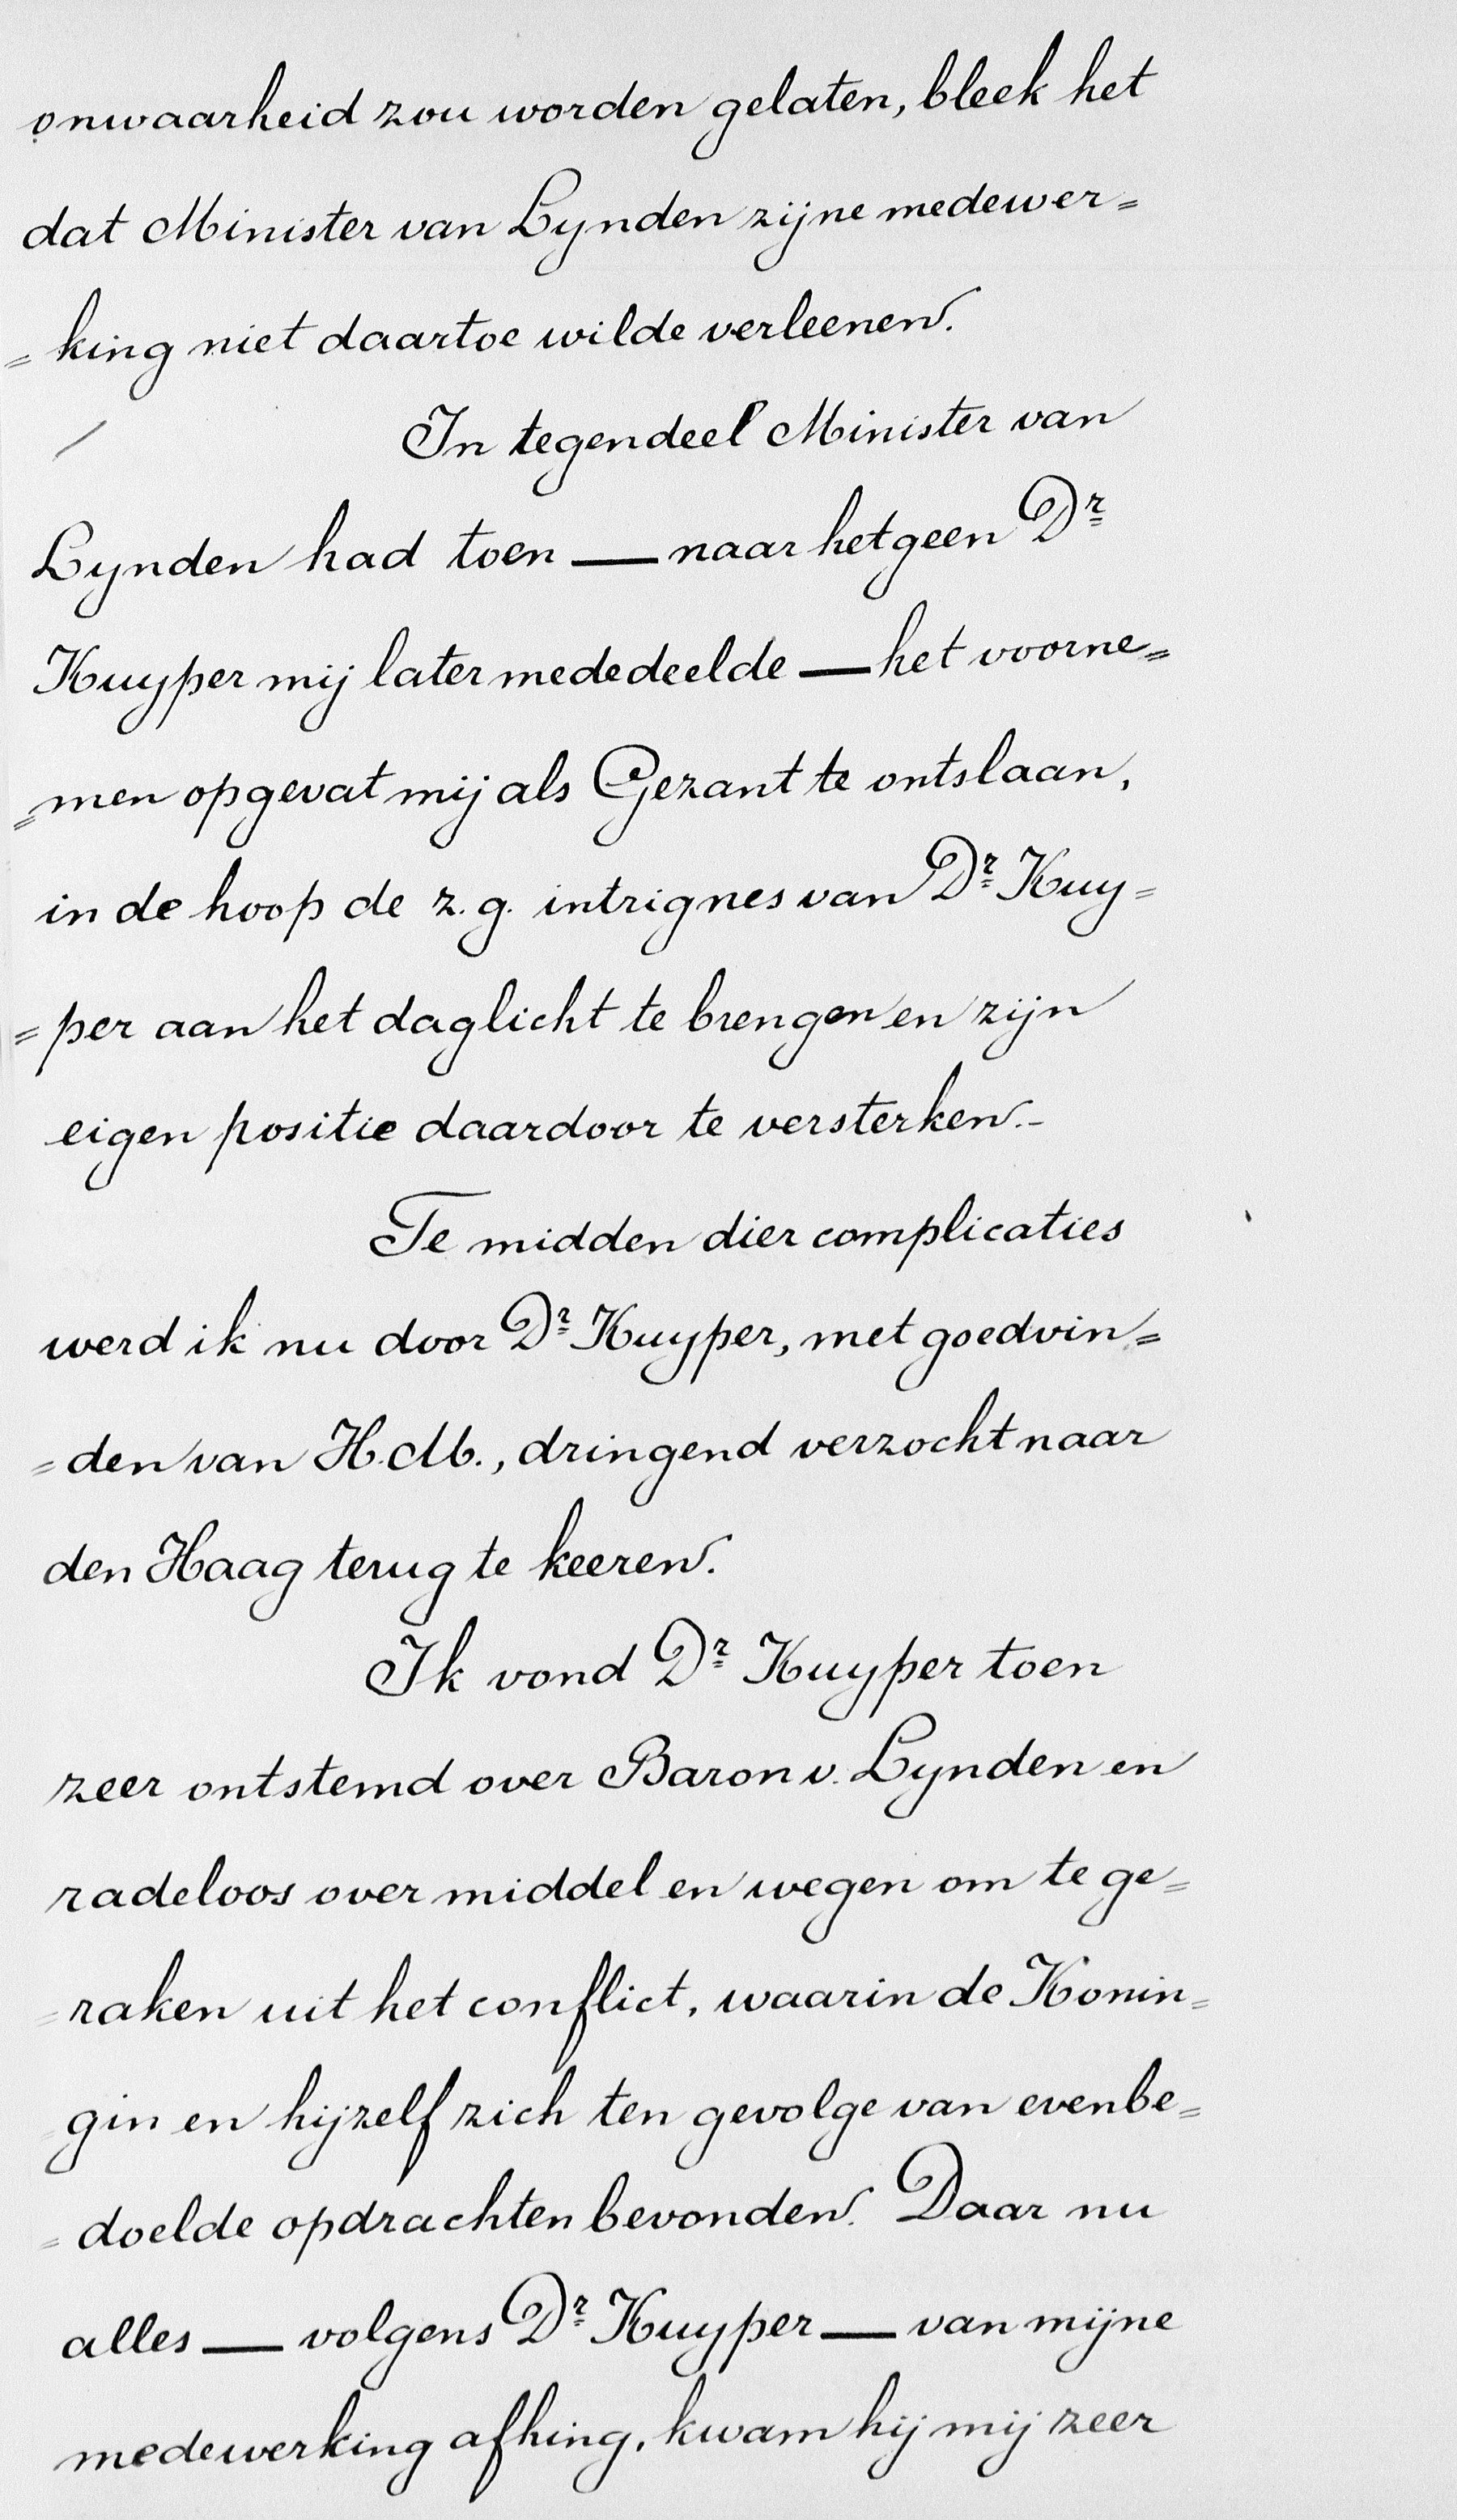 onwaarheid zou worden gelaten, bleek het
dat Minister van Lynden zijne medewer=
=king niet daartoe wilde verleenen.
In tegendeel Minister van
Lynden had toen — naar hetgeen Dr
Kuyper mij later mededeelde — het voorne=
=men opgevat mij als Gezant te ontslaan,
in de hoop de z.g. intrignes van Dr Kuy=
=per aan het daglicht te brengen en zijn
eigen positie daardoor te versterken.-
Te midden dier complicaties
werd ik nu door Dr Kuyper, met goedvin=
=den van H.M., dringend verzocht naar
den Haag terug te keeren.
Ik vond Dr Kuyper toen
zeer ontstemd over Baron v. Lynden en
radeloos over middel en wegen om te ge=
=raken uit het conflict, waarin de Konin=
=gin en hijzelf zich ten gevolge van evenbe=
=doelde opdrachten bevonden. Daar nu
alles — volgens Dr Kuyper — van mijne
medewerking afhing, kwam hij mij zeer